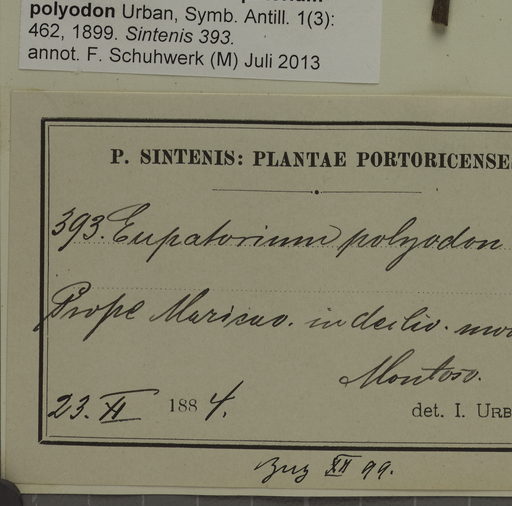 polyodon Urban, Symb. Antill. 1(3):
462, 1899. Sintenis 393.
annot. F. Schuhwerk (M) Juli 2013
P. SINTENIS: PLANTAE PORTORICENSE
393. Eupatorium polyodon
Prope Maricao. in decliv. mon
Montoso.
23. XI 1884.
det. I. URB
XII 99.